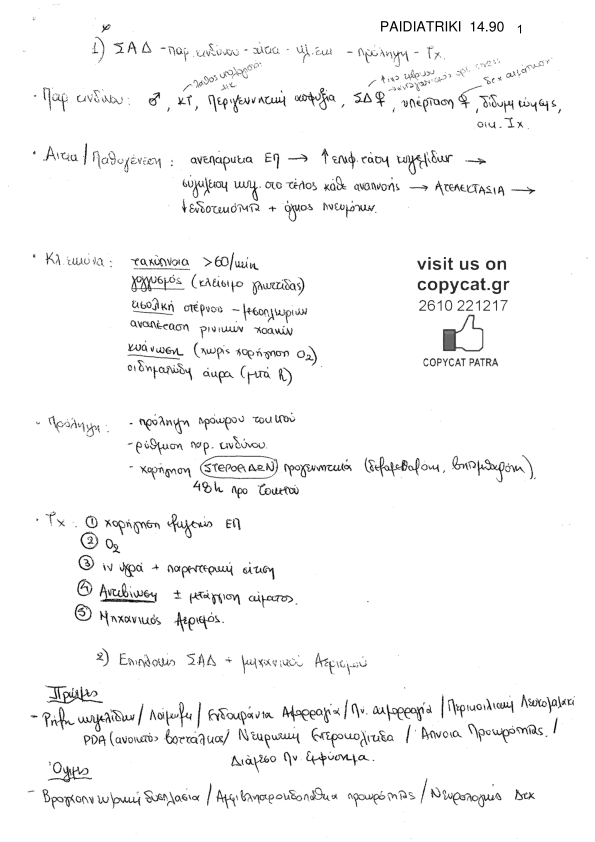 PAIDIATRIKI 14.90 1
1) ΣΑΔ - παρ. κινδύνου - αίτια - κλ. εικ - πρόληψη - Τx.
- Παρ κινδύνου: ♂, ΚΤ, Περιγεννητική ασφυξία, ΣΔ♀, υπέρταση ♀, δίδυμη κύηση,
οικ. Ιx.
• Αίτια/Παθογένεση: ανεπάρκεια ΕΠ → ↑επιφ. τάση κυψελίδων →
σύγκλειση κυψ. στο τέλος κάθε αναπνοής → ΑΤΕΛΕΚΤΑΣΙΑ →
↓ενδοτικότητα + όγκος πνευμόνων.
• Κλ. εικόνα: ταχύπνοια >60/min
γογγυσμός (κλείσιμο γλωττίδας)
εισολκή στέρνου - μεσοπλευρίων
αναπέταση ρινικών χοανών
κυάνωση (χωρίς χορήγηση Ο2)
οιδηματώδη άκρα (μετά h)
visit us on
copycat.gr
2610 221217
COPYCAT PATRA
- Πρόληψη: - πρόληψη πρόωρου τοκετού
- ρύθμιση παρ. κινδύνου
- χορήγηση ΣΤΕΡΟΕΙΔΩΝ προγεννητικά (δεξαμεθαζόνη, βηταμεθαζόνη)
48h προ τοκετού
• Τx: ① χορήγηση εξωγενώς ΕΠ
② Ο2
③ iv υγρά + παρεντερική σίτιση
④ Αντιβίωση ± μετάγγιση αίματος.
⑤ Μηχανικός Αερισμός.
2) Επιπλοκές ΣΑΔ + μηχανικού Αερισμού
Πρώιμες
- Ρήξη κυψελίδων / Λοίμωξη / Ενδοκράνια Αιμορραγία / Πν. αιμορραγία / Περικοιλιακή Λευκομαλακί
PDA (ανοικτός βοτάλλειος / Νεκρωτική Εντεροκολίτιδα / Άπνοια Προωρότητας /
Διάμεσο Πν. Εμφύσημα.
Όψιμες
- Βρογχοπνευμονική δυσπλασία / Αμφιβληστροειδοπάθεια προωρότητας / Νευρολογικές